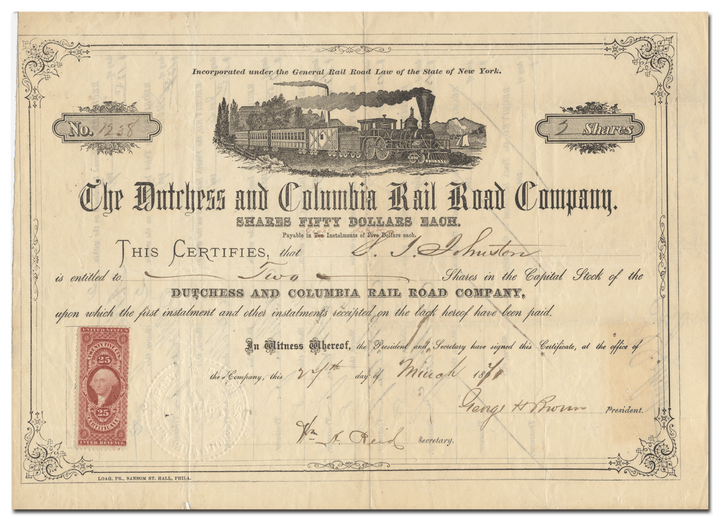 Incorporated under the General Rail Road Law of the State of New York.
No. 1238
Shares
The Dutchess and Columbia Rail Road Company.
SHARES FIFTY DOLLARS EACH.
Payable in Ten Instalments of Five Dollars each.
THIS CERTIFIES, that S. J. Johnston
is entitled to Two Shares in the Capital Stock of the
DUTCHESS AND COLUMBIA RAIL ROAD COMPANY,
upon which the first instalment and other instalments receipted on the back hereof have been paid.
In Witness Whereof, the President and Secretary have signed this Certificate, at the office of
the Company, this 27th day of March 18
George H Brown President.
Wm A. Reid Secretary.
UNITED STATES
TWENTY FIVE CTS
25
25
CERTIFICATE
INTER. REVENUE
LOAG, PR., SANSOM ST. HALL, PHILA.